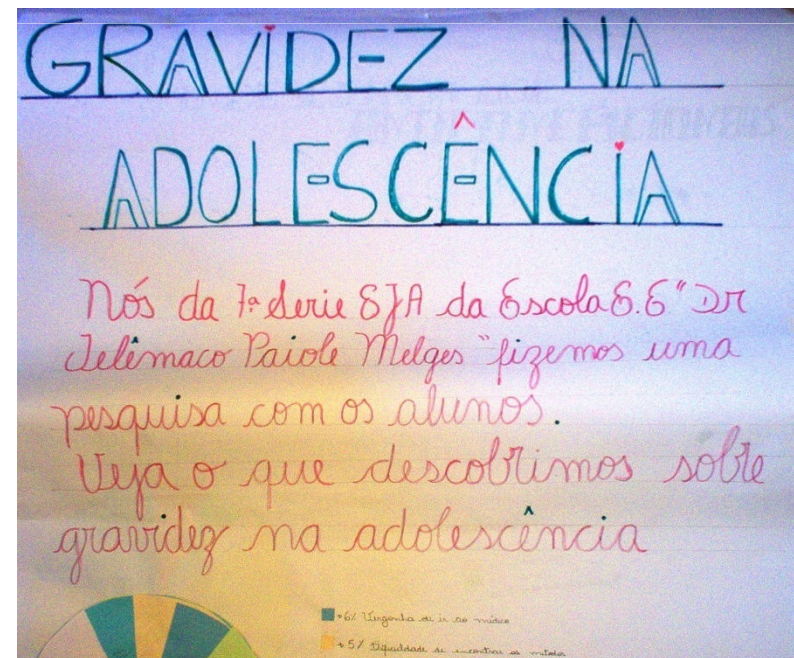 GRAVIDEZ NA
ADOLESCÊNCIA
Nós da 7ª Serie EJA da Escola E.E "Dr
Telêmaco Paiole Melges" fizemos uma
pesquisa com os alunos.
Veja o que descobrimos sobre
gravidez na adolescência
6% Vergonha de ir ao médico
5% Dificuldade de encontrar os métodos